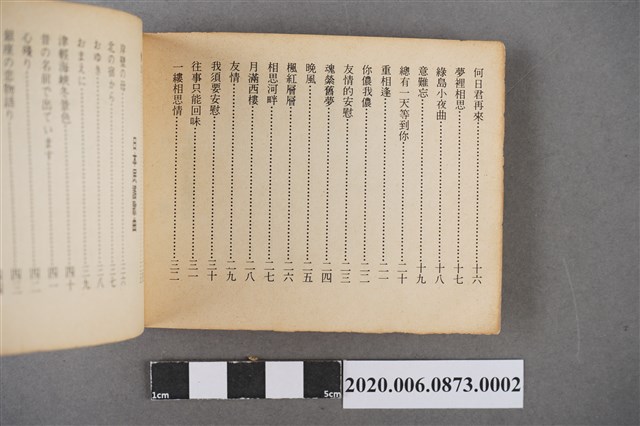 何日君再來⋯⋯十六
夢裡相思⋯⋯十七
綠島小夜曲⋯⋯十八
意難忘⋯⋯十九
總有一天等到你⋯⋯二十
重相逢⋯⋯二一
你儂我儂⋯⋯二二
友情的安慰⋯⋯二三
魂縈舊夢⋯⋯二四
晚風⋯⋯二五
楓紅層層⋯⋯二六
相思河畔⋯⋯二七
月滿西樓⋯⋯二八
友情⋯⋯二九
我須要安慰⋯⋯三十
往事只能回味⋯⋯三一
一縷相思情⋯⋯三二
おまえに⋯⋯三九
津軽海峡冬景色⋯⋯四十
昔の名前で出ています⋯⋯四一
心殘り⋯⋯四二
銀座の恋物語り
1cm
5cm
2020.006.0873.0002